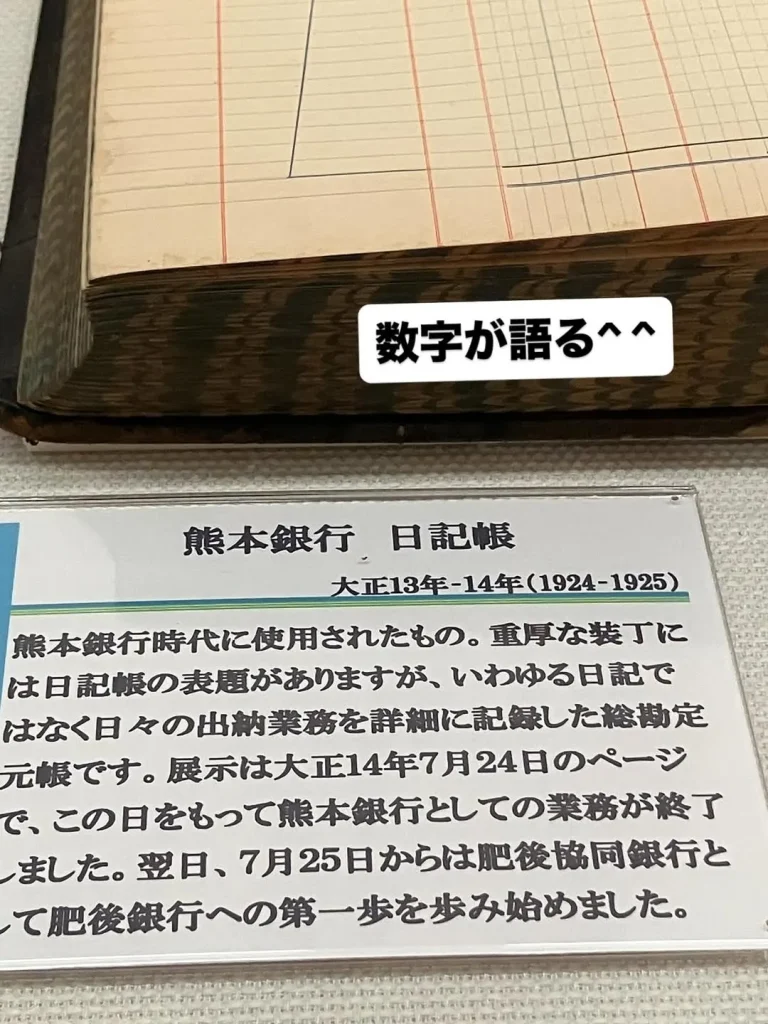 数字が語る^ ^
熊本銀行 日記帳
大正13年-14年(1924-1925)
熊本銀行時代に使用されたもの。重厚な装丁に
は日記帳の表題がありますが、いわゆる日記で
はなく日々の出納業務を詳細に記録した総勘定
元帳です。展示は大正14年7月24日のページ
で、この日をもって熊本銀行としての業務が終了
しました。翌日、7月25日からは肥後協同銀行と
して肥後銀行への第一歩を歩み始めました。